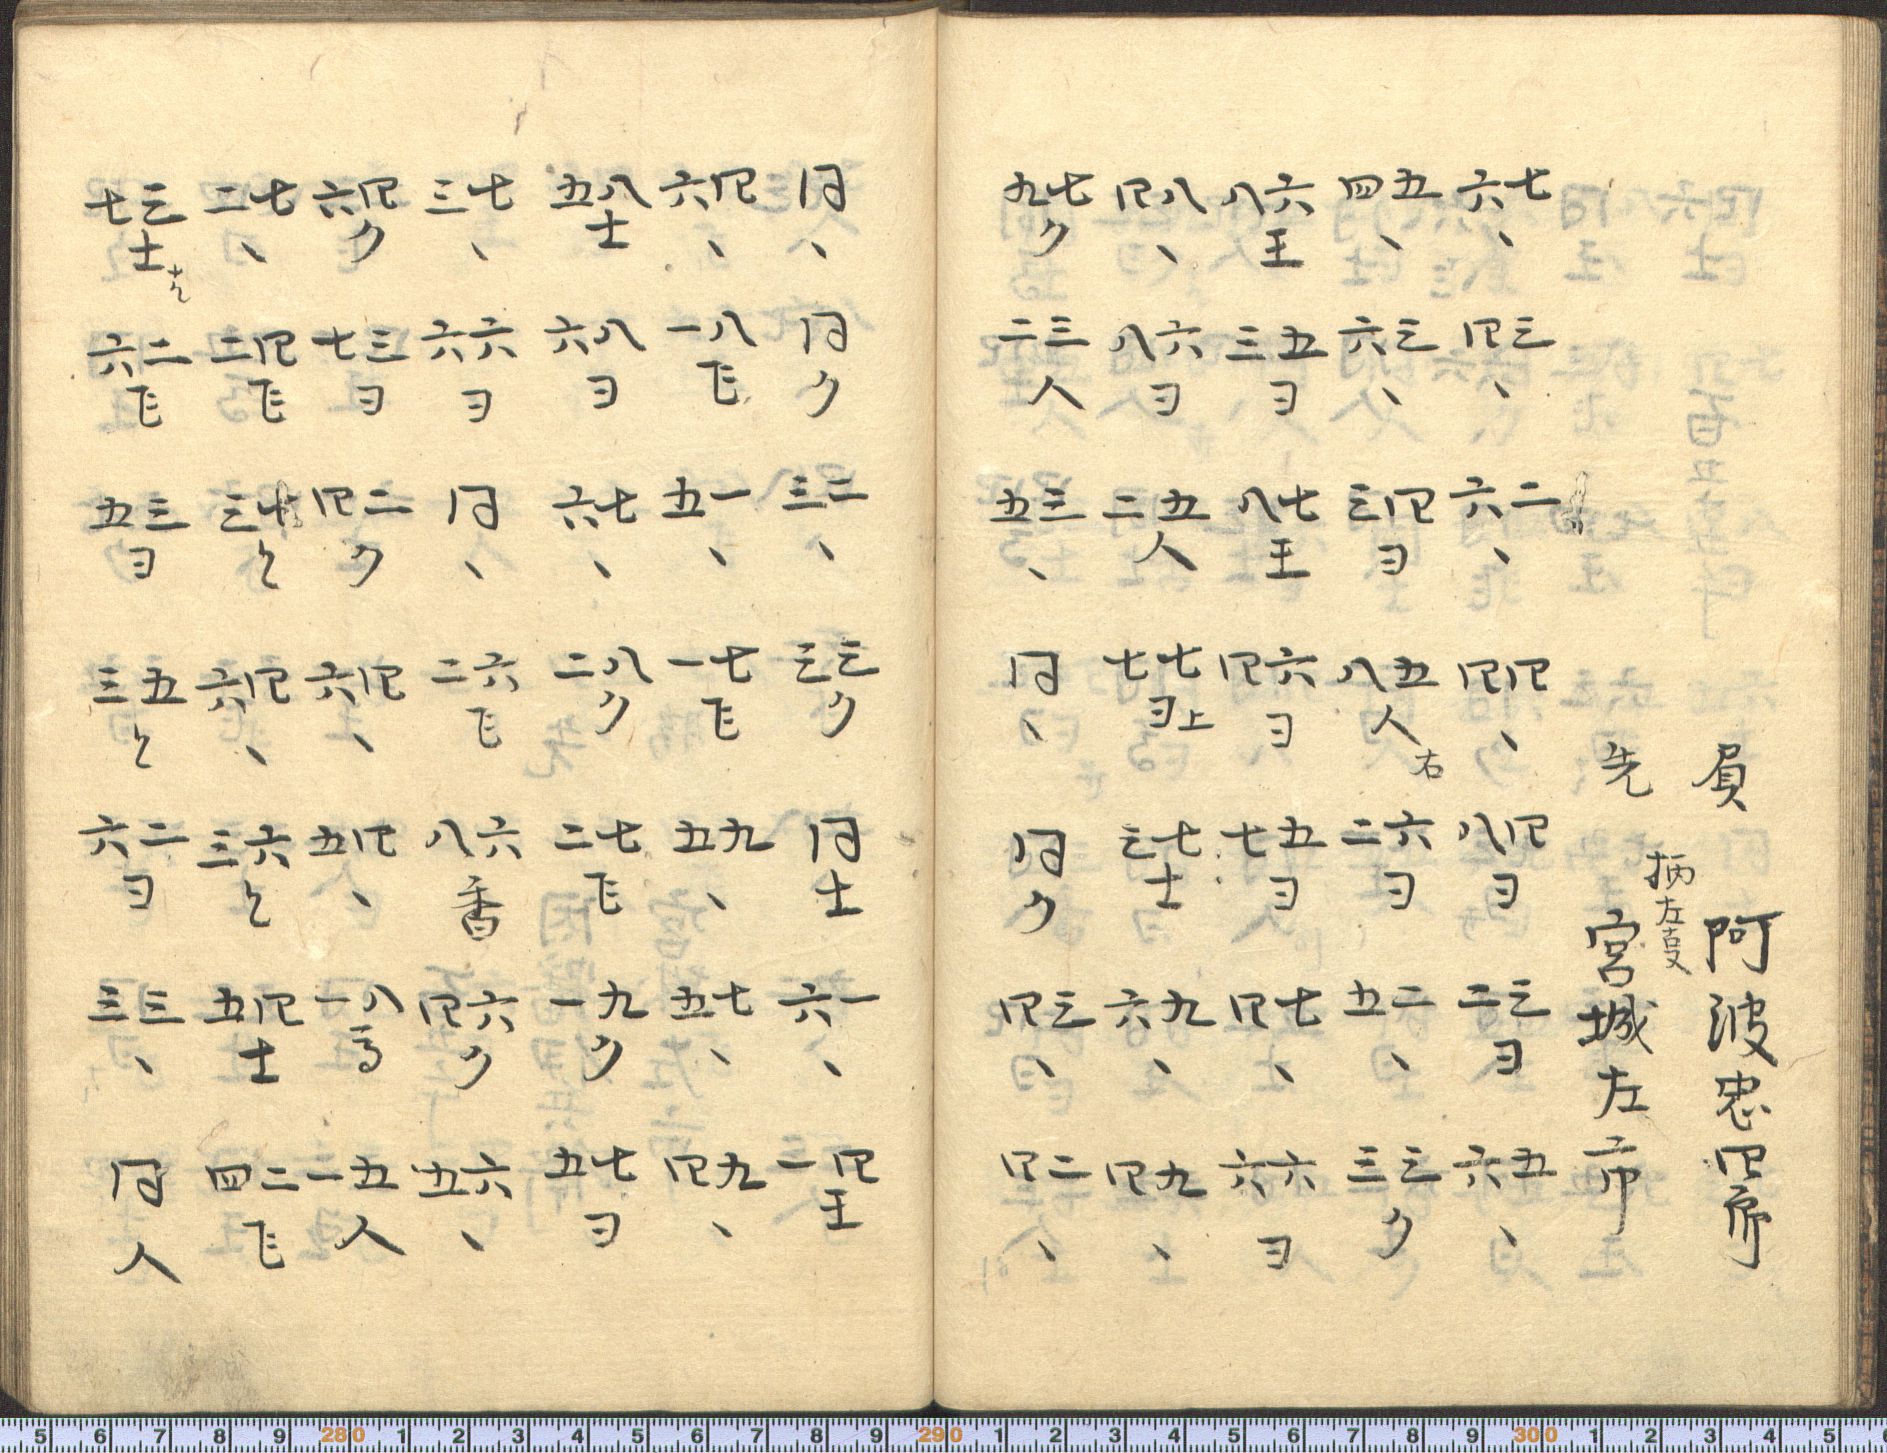 員 阿波忠四郎
柄左吉叓
先 宮城左市
七六、 三四、 二六、 四四、 四八ヨ 三二ヨ 五六、
五四、 三六、 四三ヨ 五八人右 六二ヨ 二五、 三三ク
六八王 五三ヨ 七八王 六四ヨ 五七ヨ 七四、 六六ヨ
八四、 六八ヨ 五二人 七七ヨ上 七三士 九六、 九四、
七九ク 三二人 三五、 同、 同ク 三四、 二四、
同、 同ク 二三、 三三ク 同士 一六、 四一王
四六、 八一飞 一五、 七一飞 九五、 七五、 九四、
八五士 八六ヨ 七六、 八二ク 七二飞 九一ク 七五ヨ
七三、 六六ヨ 同、 六二飞 六八香 六四ク 六五、
四六ク 三七ヨ 二四ク 四六、 四五、 八一马 五一人
七二、 四二飞 七三と 四六、 六三と 四五士 二四飞
三七士 二六飞 三五ヨ 五三と 二六ヨ 三三、 同人